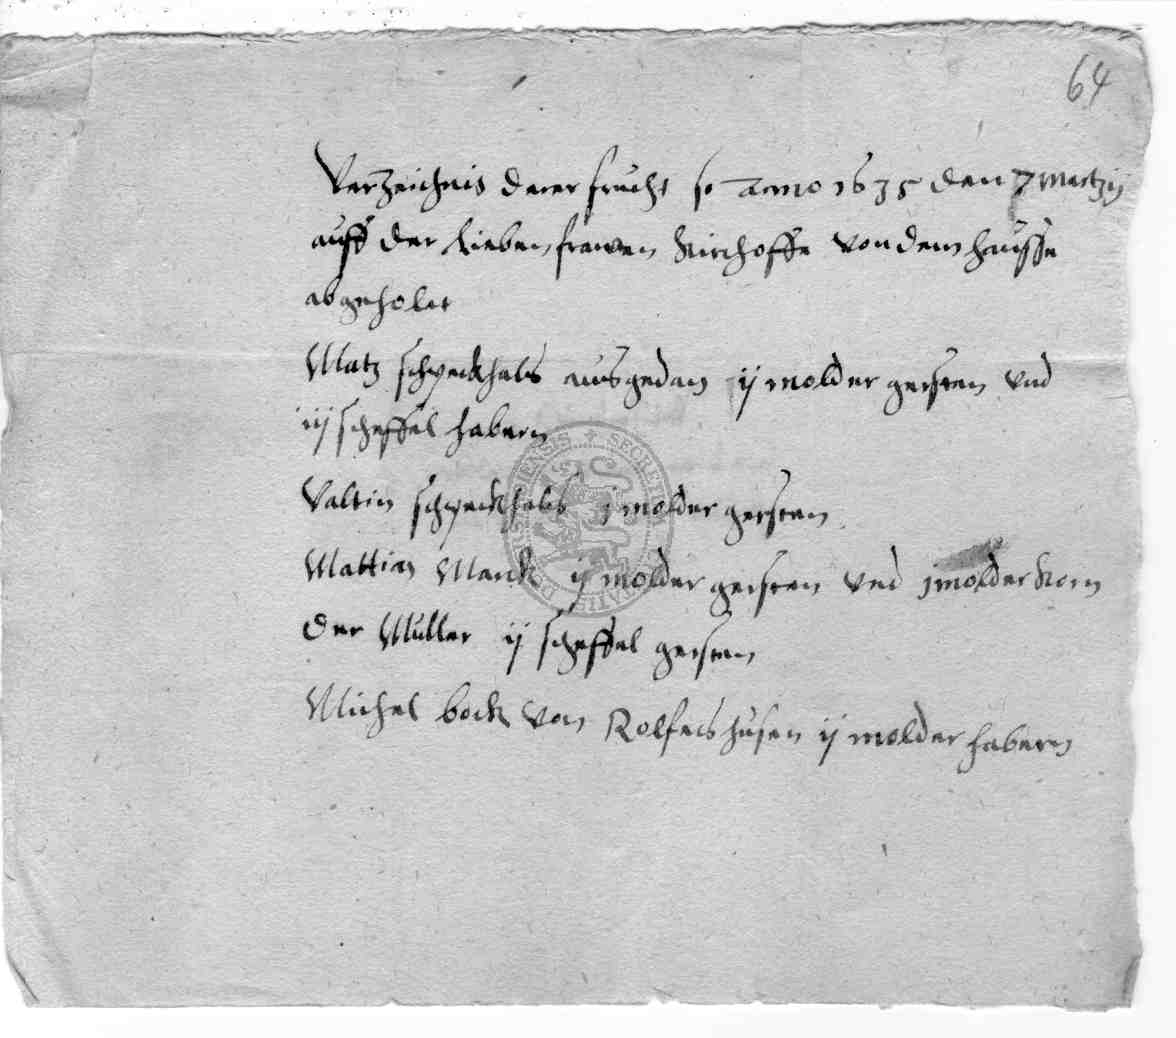 64
Verzeichnis derer frucht so Anno 1635 den 7 Martzij
auff der Lieben frawen Kirchoffe von dem hausse
abgeholet
Matz schpeckhals ausgedan ij molder gersten vnd
iij scheffel habern
Valtin schpeckhals j molder gersten
Mattias Marck ij molder gersten vnd j molder korn
der Muller ij scheffel gersten
Michel bock von Rolfeshusen ij molder habern